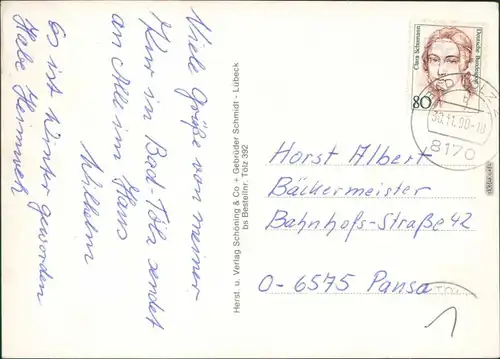 Viele Grüße von meiner
Kur in Bad-Tölz sendet
an Alle im Haus
Wilhelm
Es ist Winter geworden
Habe Heimweh
Herst. u. Verlag Schöning & Co + Gebrüder Schmidt - Lübeck
bs Bestellnr. Tölz 392
Clara Schumann
Deutsche Bundespost
80
30.11.90-18
8170
Horst Albert
Bäckermeister
Bahnhofs-Straße 42
O-6575 Pausa